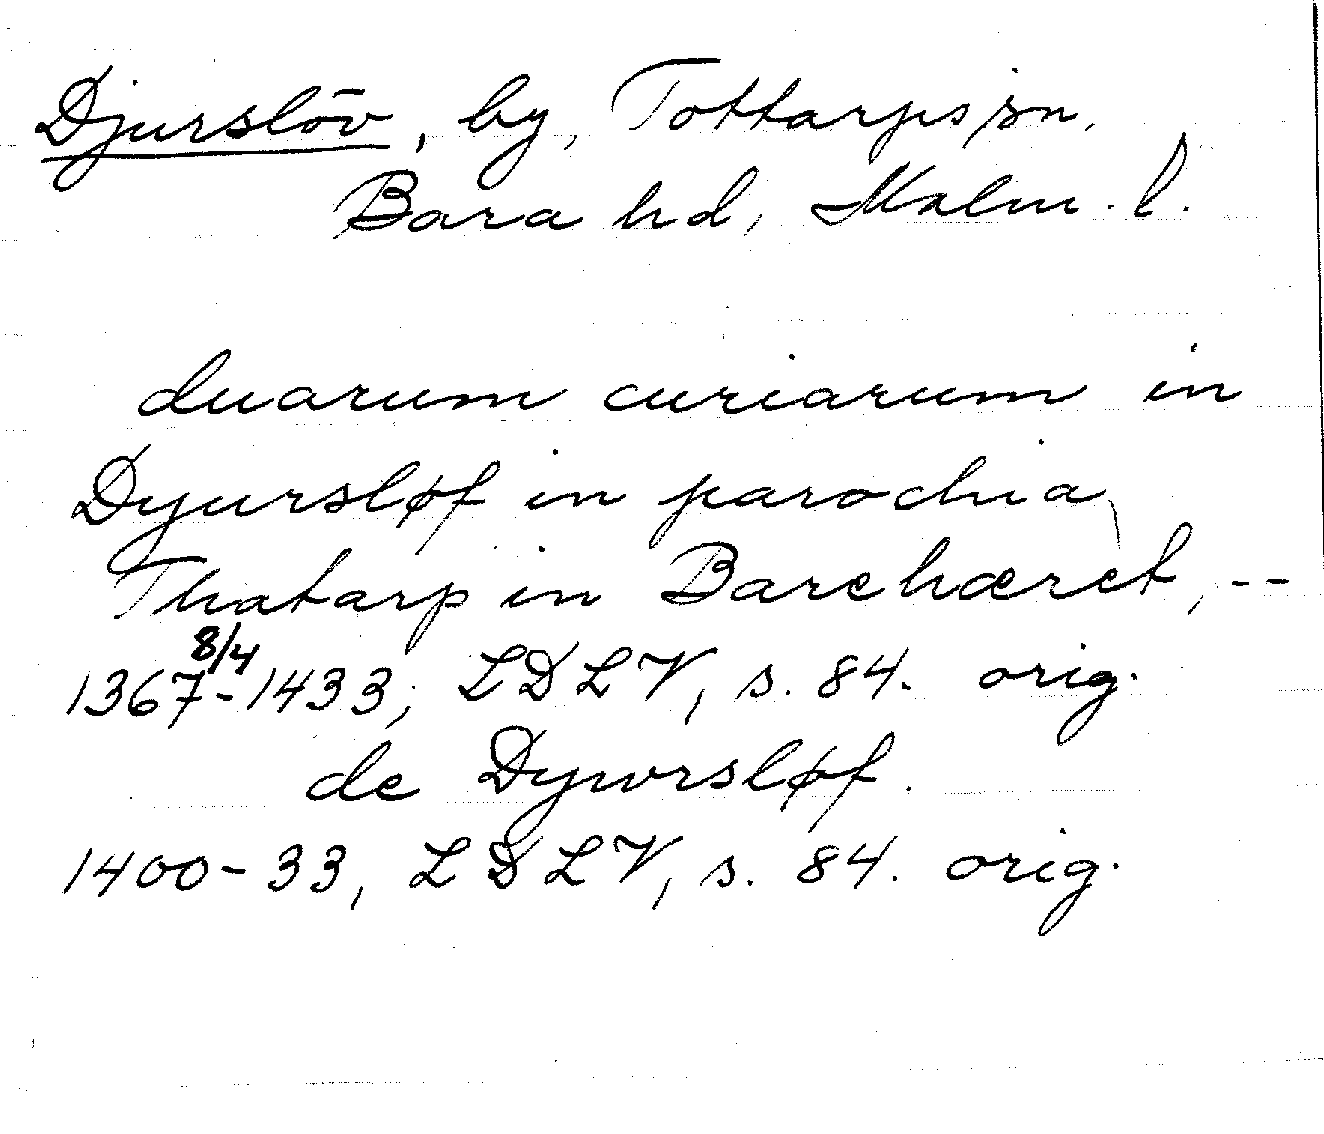 Djurslöv, by, Tottarps sn.
Bara hd, Malm. l.
duarum curiarum in
Dyursløf in parochia
Thatarp in Barehæret, --
1367 8/4 - 1433, LDLV, s. 84. orig.
de Dywrsløf.
1400-33, LDLV, s. 84. orig.